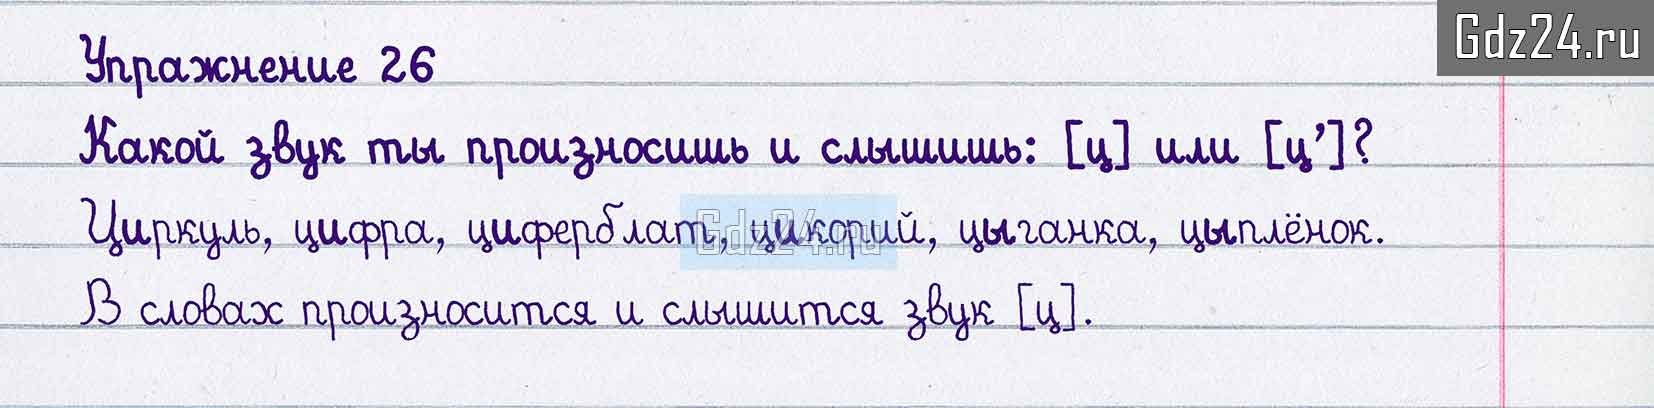 Gdz24.ru
Упражнение 26
Какой звук ты произносишь и слышишь: [ц] или [ц']?
Циркуль, цифра, циферблат, цикорий, цыганка, цыплёнок.
Gdz24.ru
В словах произносится и слышится звук [ц].